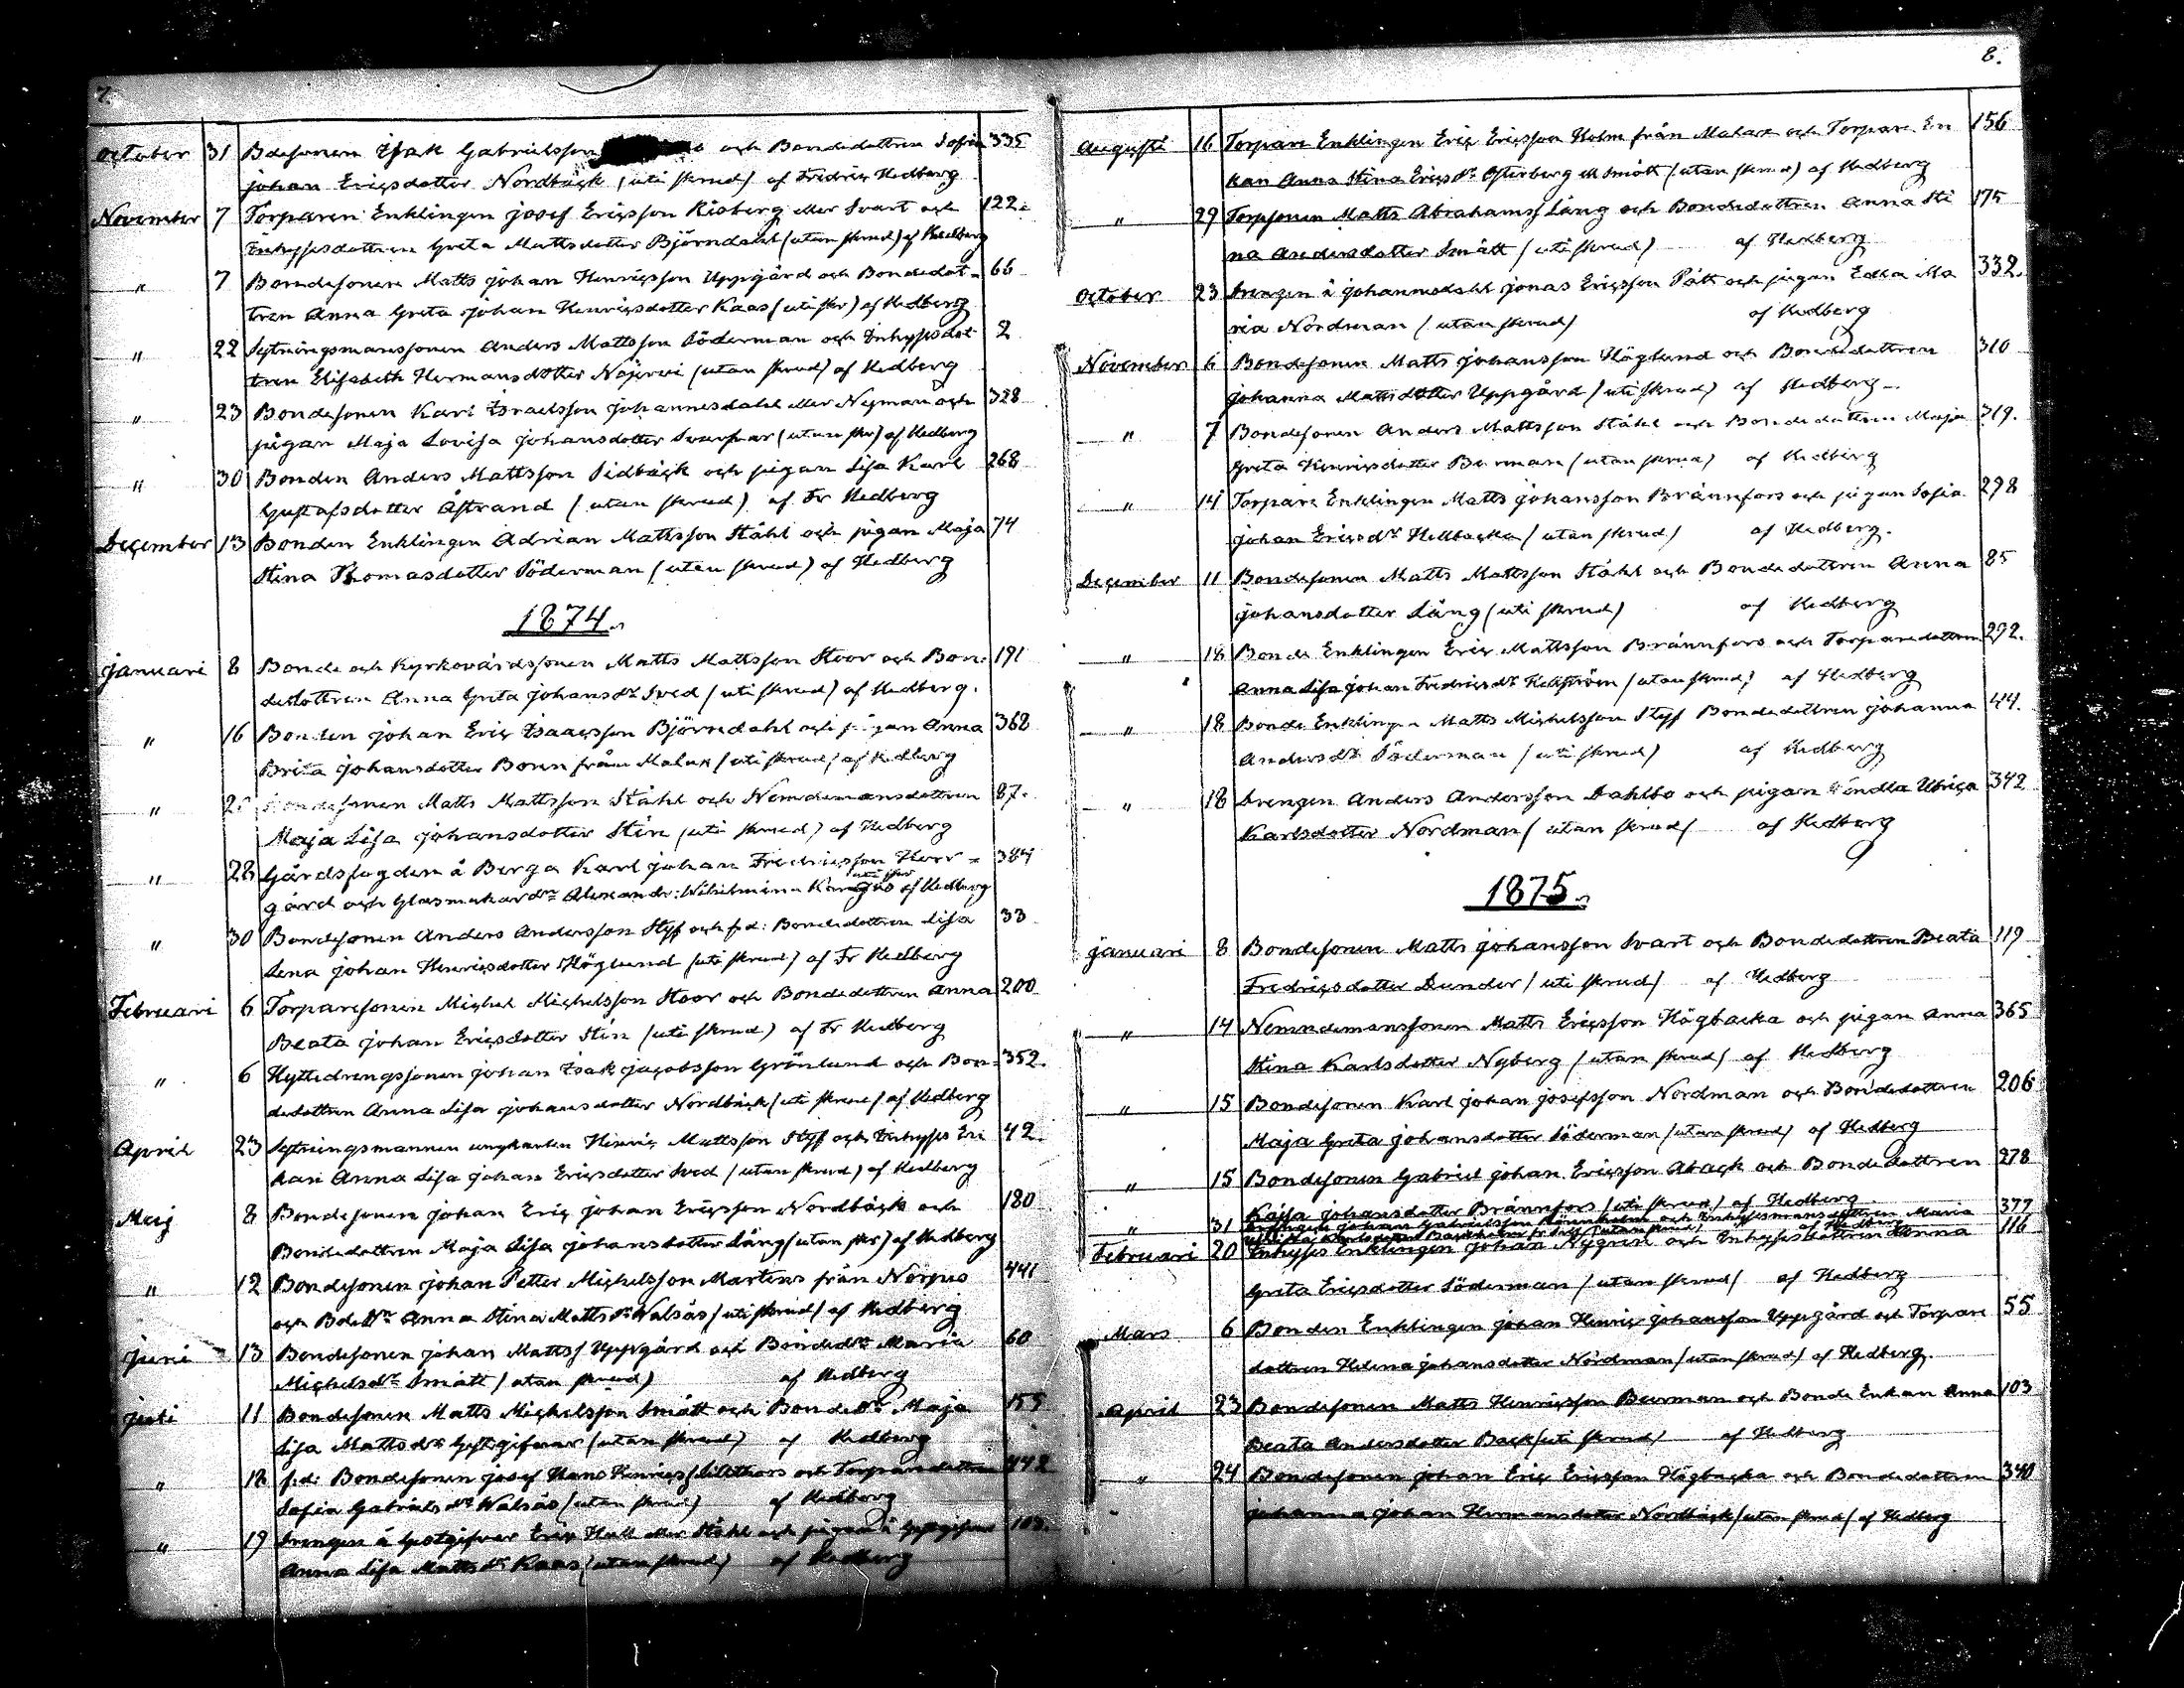 7.
October 31 Bdesonen Isak Gabrielsson och Bondedottren Sofia 335
Johan Ericsdotter Nordbäck (uti skrud) af Fredric Hedberg
November 7 Torparen Enklingen Josef Ericsson Risberg eller Svart och 122.
Inhysesdottren Greta Mattsdotter Björndahl (utan skrud) af Hedberg
" 7 Bondesonen Matts Johan Henricsson Uppgård och Bondedot- 66
tren Anna Greta Johan Henricsdotter Kaas (uti skr) af Hedberg
" 22 Sytningsmanssonen Anders Mattsson Söderman och Inhysesdot- 2
tren Elisabeth Hermansdotter Näjervi (utan skrud) af Hedberg
" 23 Bondesonen Karl Israelsson Johannesdahl eller Nyman och 328
pigan Maja Lovisa Johansdotter Svarfvar (utan skr) af Hedberg
" 30 Bonden Anders Mattsson Sidbäck och pigan Lisa Karl 268
Gustafsdotter Åstrand (utan skrud) af Fr Hedberg
December 13 Bonden Enklingen Adrian Mattsson Ståhl och pigan Maja 74
Stina Thomasdotter Söderman (utan skrud) af Hedberg
1874.
Januari 8 Bonde och Kyrkovärdssonen Matts Mattsson Stoor och Bon- 191
dedottren Anna Greta Johansdr Sved (uti skrud) af Hedberg.
" 16 Bonden Johan Eric Isaacsson Björndahl och pigan Anna 368
Brita Johansdotter Boren från Malax (uti skrud) af Hedberg
" Bondesonen Matts Mattsson Ståhl och Nemndemansdottren 87.
Maja Lisa Johansdotter Stén (uti skrud) af Hedberg
" 28 Gårdsfogden å Berga Karl Johan Fredricsson Herr- 384
gård och Glasmakardr Alexandr: Wilhelmina af Hedberg
" 30 Bondesonen Anders Andersson Styf och f.d: Bondedottren Lisa 33
Lena Johan Henricsdotter Höglund (uti skrud) af Fr Hedberg
Februari 6 Torparesonen Michel Michelsson Stoor och Bondedottren Anna 200
Beata Johan Ericsdotter Stén (uti skrud) af Fr Hedberg
" 6 Hyttedrengsonen Johan Isak Jacobsson Grönlund och Bon- 352.
dedottren Anna Lisa Johansdotter Nordbäck (uti skrud) af Hedberg
April 23 Sytningsmannen ungkarlen Henric Mattsson Styf och Inhyses En 42.
kan Anna Lisa Johan Ericsdotter Sved (utan skrud) af Hedberg
Maj 8 Bondesonen Johan Eric Johan Ericsson Nordbäck och 180
Bondedottren Maja Lisa Johansdotter Lång (utan skr) af Hedberg
" 12 Bondesonen Johan Petter Michelsson Martens från Norpus 441
och Bdedtrn Anna Stina Mattsdr Walsäs (uti skrud) af Hedberg
Juni 13 Bondesonen Johan Matts Uppgård och Bondedtr Maria 60
Michelsdr Smått (utan skrud) af Hedberg
Juli 11 Bondesonen Matts Michelsson Smått och Bondedtr Maja 155
Lisa Mattsdr Gästgifvar (utan skrud) af Hedberg
" 18 f.d: Bondesonen Josef Hans Henrics Lillthors och Torparedottren 442
Sofia Gabrielsdr Walsäs (utan skrud) af Hedberg
" 19 Drengen å Gästgifvar Eric Hall eller Ståhl och pigan å Gästgifvar 103.
Anna Lisa Mattsdr Kaas (utan skrud) af Hedberg
8.
Augusti 16 Torpare Enklingen Eric Ericsson Holm från Malax och Torpare En 156
kan Anna Stina Ericsdr Österberg ell Smått (utan skrud) af Hedberg
" 29 Torpsonen Matts Abrahams Lång och Bondedottren Anna Sti 175
na Andersdotter Smått (uti skrud) af Hedberg
October 23 Drengen å Johannesdahl Jonas Ericsson Pått och pigan Edla Ma 332.
ria Nordman (utan skrud) af Hedberg
November 6 Bondesonen Matts Johansson Höglund och Bondedottren 310
Johanna Mattsdotter Uppgård (uti skrud) af Hedberg
" 7 Bondesonen Anders Mattsson Ståhl och Bondedottren Maja 319.
Greta Henricsdotter Beurman (utan skrud) af Hedberg
" 14 Torpare Enklingen Matts Johansson Brännfors och pigan Sofia 298
Johan Ericsdr Hellbacka (utan skrud) af Hedberg.
December 11 Bondesonen Matts Mattsson Ståhl och Bondedottren Anna 85
Johansdotter Lång (uti skrud) af Hedberg
" 18 Bonde Enklingen Eric Mattsson Brännfors och Torparedottren 292.
Anna Lisa Johan Fredricsdr Hellström (utan skrud) af Hedberg
" 18 Bonde Enklingen Matts Michelsson Styf Bondedottren Johanna 44.
Andersdr Söderman (uti skrud) af Hedberg
" 18 Drengen Anders Andersson Dahlbo och pigan Fendla Ulrica 342
Karlsdotter Nordman (utan skrud) af Hedberg
1875.
Januari 8 Bondesonen Matts Johansson Svart och Bondedottren Beata 119
Fredricsdotter Dunder (uti skrud) af Hedberg
" 14 Nemndemanssonen Matts Ericsson Högbacka och pigan Anna 365
Stina Karlsdotter Nyberg (utan skrud) af Hedberg
" 15 Bondesonen Karl Johan Josefsson Nordman och Bondedottren 206
Maja Greta Johansdotter Söderman (utan skrud) af Hedberg
" 15 Bondesonen Gabriel Johan Ericsson Aback och Bondedottren 278
Kajsa Johansdotter Brännfors (uti skrud) af Hedberg
" 31 Drengen Johan Gabrielsson och Inhysesmansdottren Maria 377
(utan skrud) af Hedberg
Februari 20 Inhyses Enklingen Johan Nygren och Inhysesdottren Anna 116
Greta Ericsdotter Söderman (utan skrud) af Hedberg
Mars 6 Bonden Enklingen Johan Henric Johansson Uppgård och Torpare 55
dottren Helena Johansdotter Nordman (utan skrud) af Hedberg.
April 23 Bondesonen Matts Henricsson Beurman och Bonde Enkan Anna 103
Beata Andersdotter Back (uti skrud) af Hedberg
" 24 Bondesonen Johan Eric Ericsson Högbacka och Bondedottren 340
Johanna Johan Hermansdotter Nordbäck (utan skrud) af Hedberg